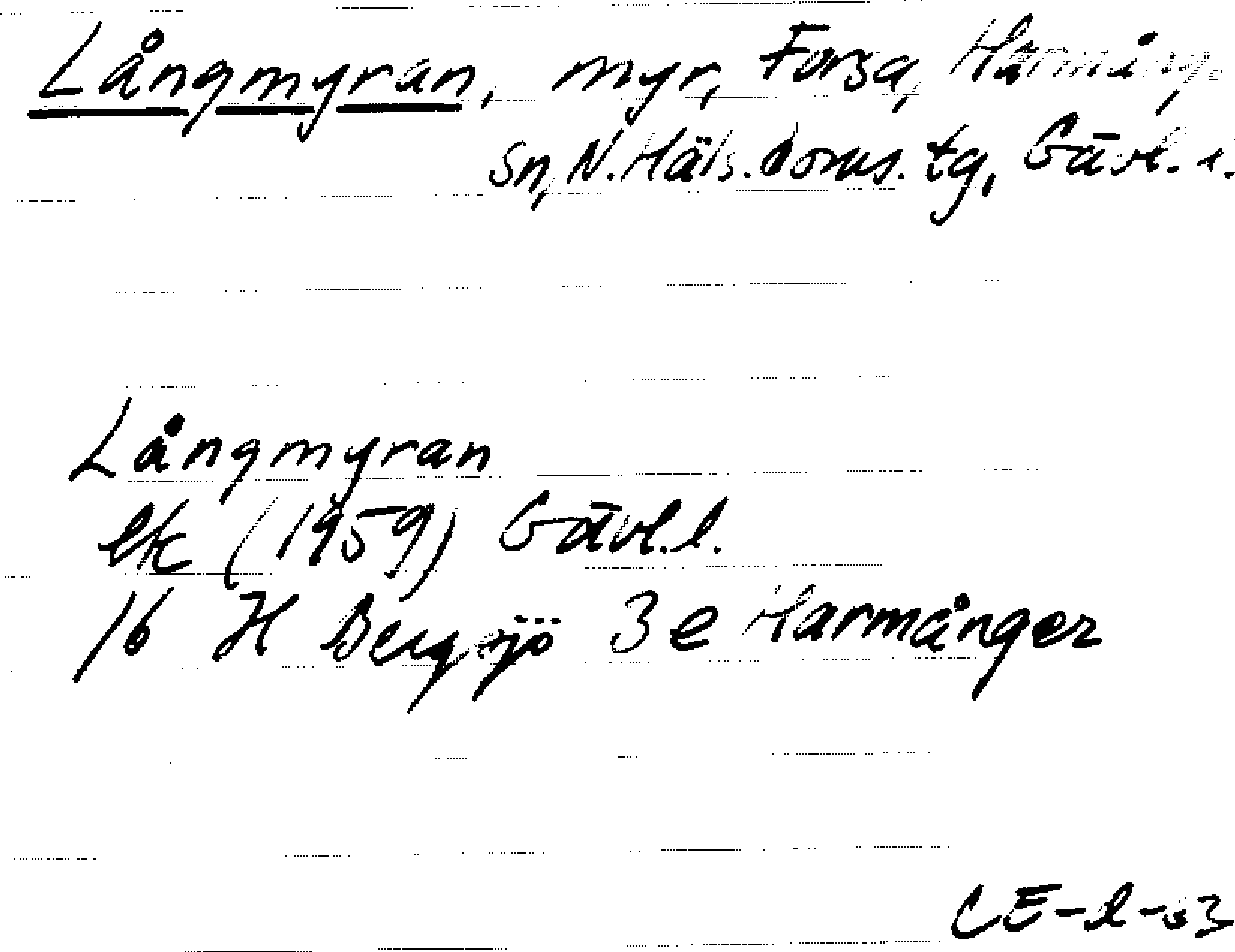 Långmyran, myr, Forsa, Harmång.
Sn, N. Häls. doms. tg, Gävl. l.
Långmyran
ek (1959) Gävl. l.
16 H Bergsjö 3 e Harmånger
CE-l-63